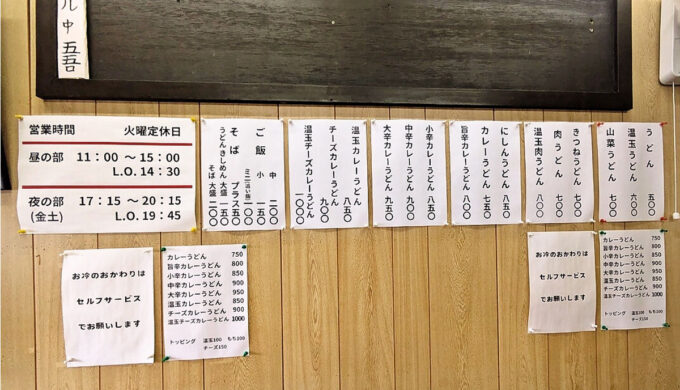 ル中 五吾
営業時間 火曜定休日
昼の部 11:00 ～15:00
L.O.14:30
夜の部 17:15 ～20:15
(金土) L.O.19:45
うどん 五〇〇
温玉うどん 六〇〇
山菜うどん 七〇〇
きつねうどん 七〇〇
肉うどん 七〇〇
温玉肉うどん 八〇〇
にしんうどん 八五〇
カレーうどん 七五〇
旨辛カレーうどん 八〇〇
小辛カレーうどん 八五〇
中辛カレーうどん 九〇〇
大辛カレーうどん 九五〇
温玉カレーうどん 八五〇
チーズカレーうどん 九〇〇
温玉チーズカレーうどん 一〇〇〇
ご飯 中 二〇〇
小 一五〇
ミニ(追い飯) 一〇〇
そば プラス五〇
うどんきしめん 大盛 一五〇
そば 大盛 二〇〇
お冷のおかわりは
セルフサービス
でお願いします
カレーうどん 750
旨辛カレーうどん 800
小辛カレーうどん 850
中辛カレーうどん 900
大辛カレーうどん 950
温玉カレーうどん 850
チーズカレーうどん 900
温玉チーズカレーうどん 1000
トッピング 温玉100 もち200
チーズ150
お冷のおかわりは
セルフサービス
でお願いします
カレーうどん 750
旨辛カレーうどん 800
小辛カレーうどん 850
中辛カレーうどん 900
大辛カレーうどん 950
温玉カレーうどん 850
チーズカレーうどん 900
温玉チーズカレーうどん 1000
トッピング 温玉100 もち200
チーズ150